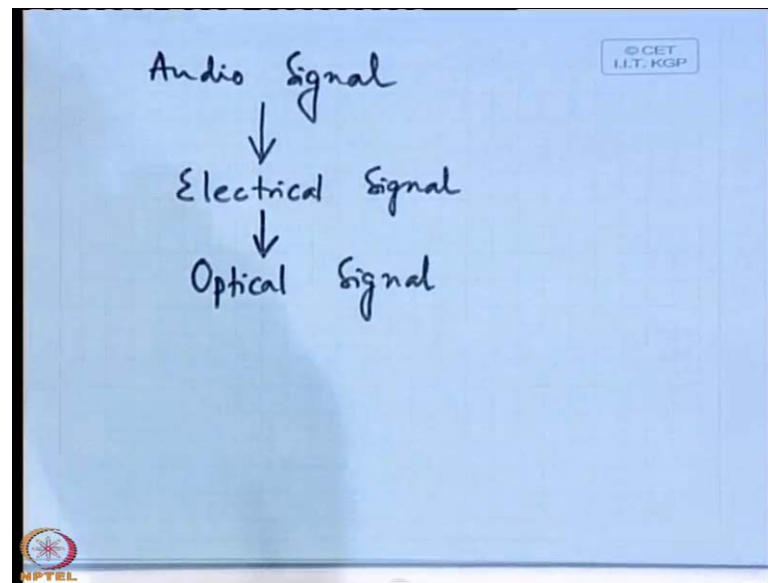 © CET
I.I.T. KGP
Audio Signal
Electrical Signal
Optical Signal
NPTEL